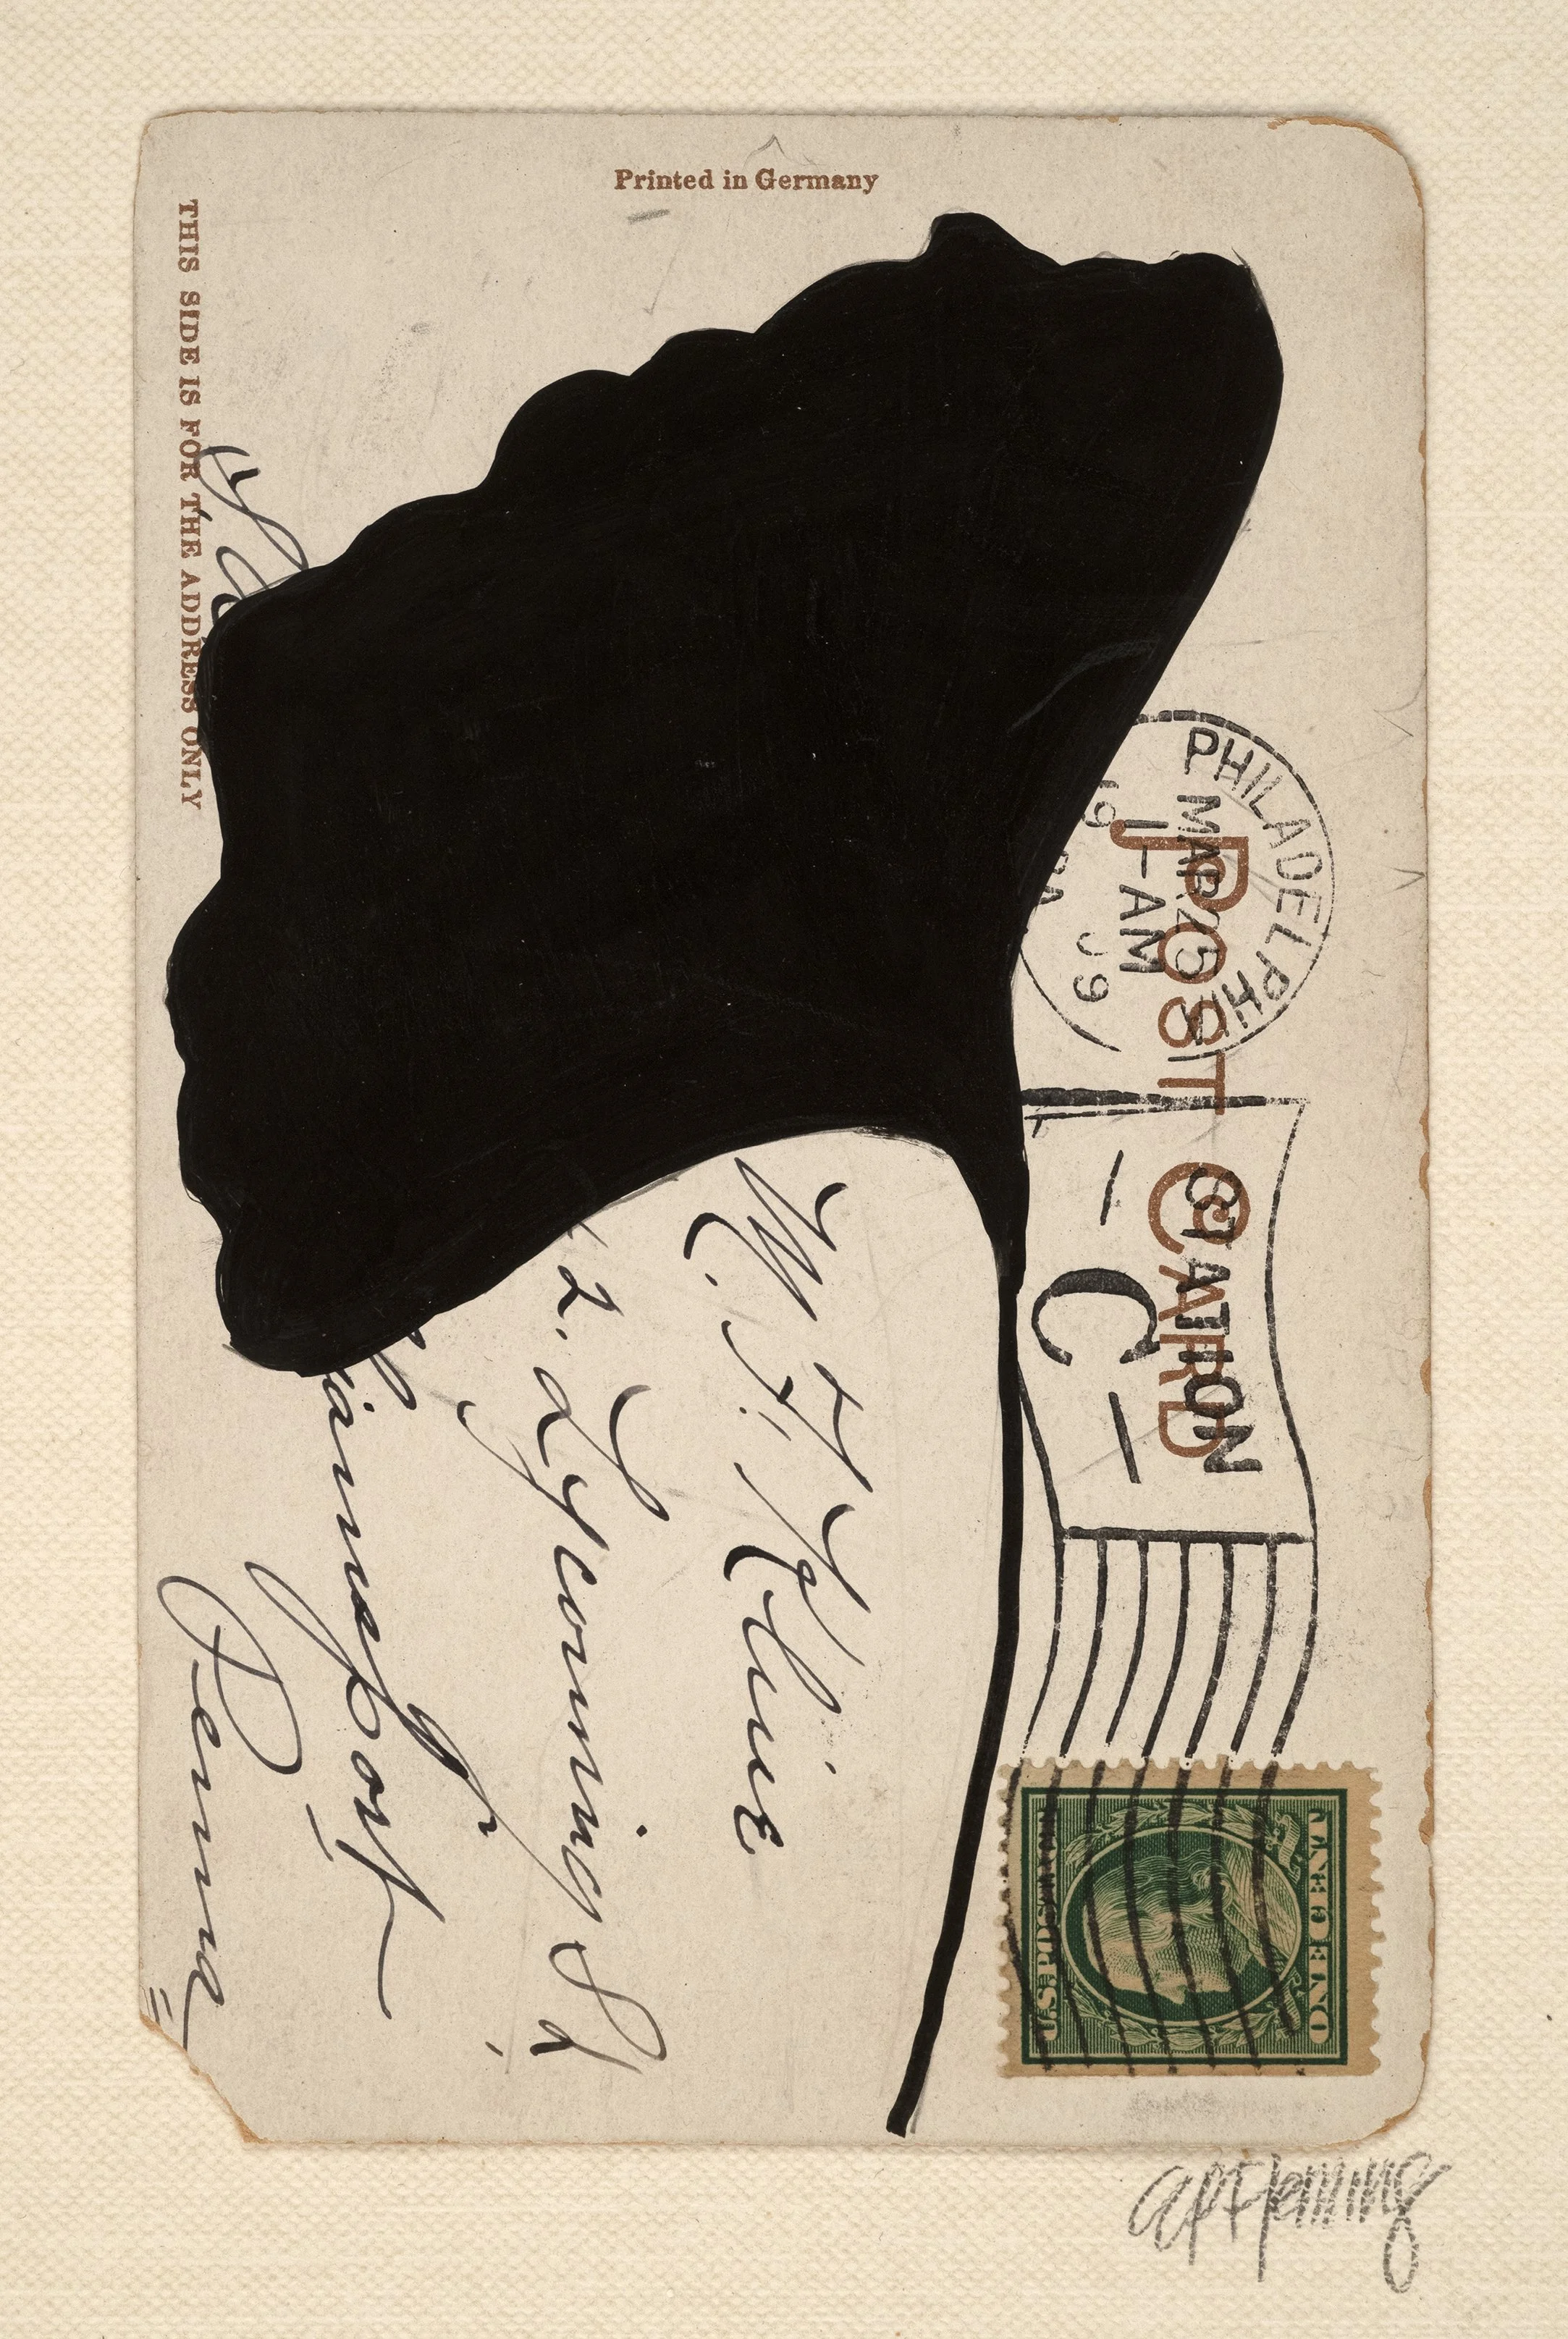 Printed in Germany
THIS SIDE IS FOR THE ADDRESS ONLY
POST CARD
PHILADELPHI
MAR 15
1-AM
09
STATION
- C -
U.S. POSTAGE
ONE CENT
W. H. Kline
2. Lycoming St
iamsport
Penna